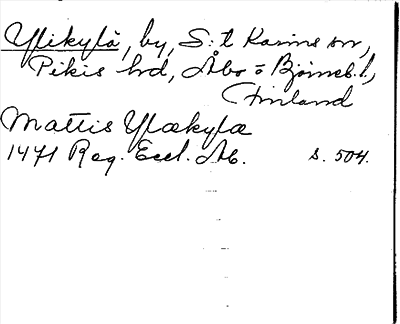 Ylikylä, by, S:t Karins sn,
Pikis hd, Åbo o Björneb. l.,
Finland
Mattis Ylækylæ
1471 Reg. Eccl. Åb. s. 504.